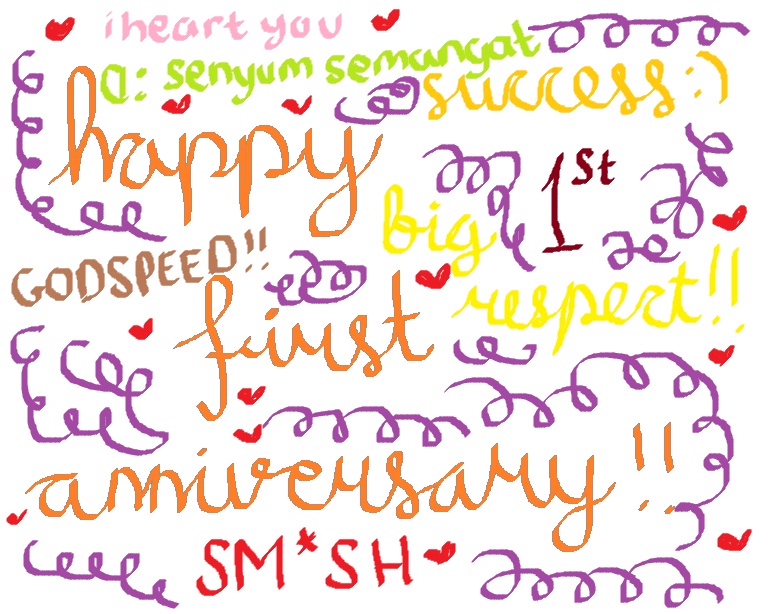 i heart you
D: senyum semangat
success :)
happy
1st
big
respect!!
GODSPEED!!
first
anniversary!!
SM*SH